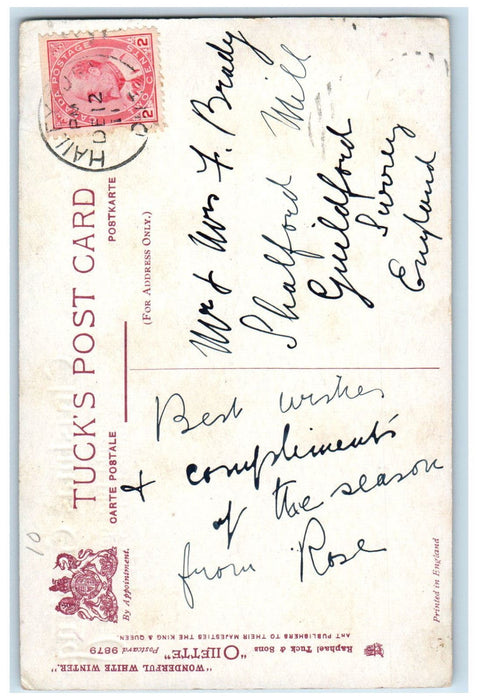 "WONDERFUL WHITE WINTER."
"OILETTE" Postcard 9879
Raphael Tuck & Sons
ART PUBLISHERS TO THEIR MAJESTIES THE KING & QUEEN.
By Appointment.
TUCK'S POST CARD
CARTE POSTALE
POSTKARTE
(FOR ADDRESS ONLY.)
Best wishes
& compliments
of the season
from Rose
Mr & Mrs F. Brady
Shalford Mill
Guildford
Surrey
England
Printed in England
POSTAGE
2 CENTS 2
DE 12
10